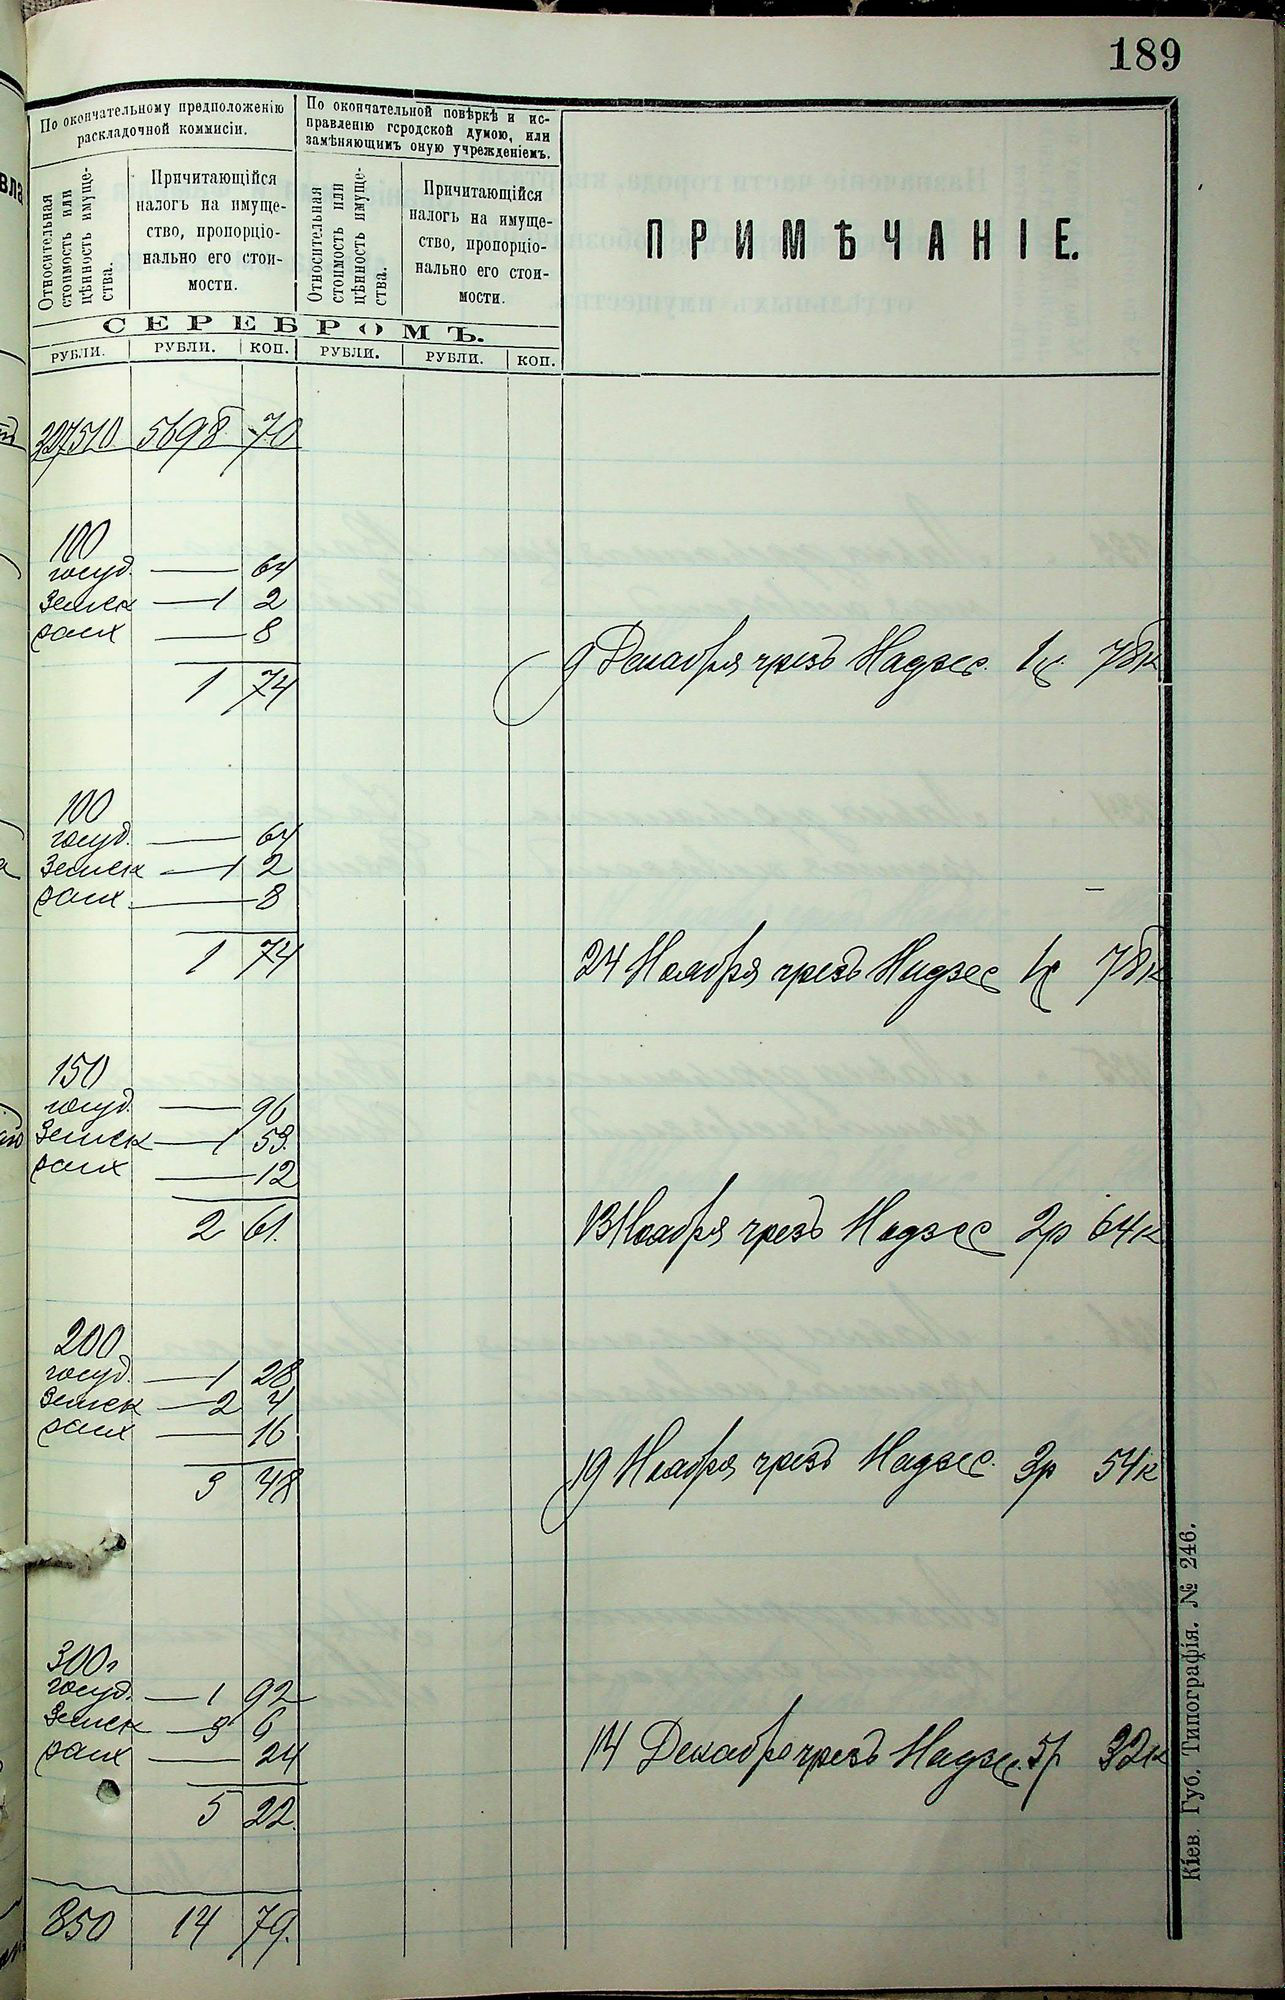 189
По окончательному предположенію
раскладочной коммисіи.
По окончательной повѣркѣ и ис-
правленію городской думою, или
замѣняющимъ оную учрежденіемъ.
Относительная
стоимость или
цѣнность имуще-
ства.
Причитающійся
налогъ на имуще-
ство, пропорціо-
нально его стои-
мости.
Относительная
стоимость или
цѣнность имуще-
ства.
Причитающійся
налогъ на имуще-
ство, пропорціо-
нально его стои-
мости.
ПРИМѢЧАНІЕ.
СЕРЕБРОМЪ.
РУБЛИ. РУБЛИ. КОП. РУБЛИ. РУБЛИ. КОП.
327510 5698 70
100
госуд. — 64
Земск — 1 2
— 8
1 74
9 Декабря чрезъ Надзс. 1р 78к
100
госуд. — 64
Земск — 1 2
— 8
1 74
24 Ноября чрезъ Надзс 1р 78к
150
госуд. — 96
Земск — 1 53
— 12
2 61
13 Ноября чрезъ Надзс 2р 64к
200
госуд. — 1 28
Земск — 2 4
— 16
3 48
19 Ноября чрезъ Надзс. 3р 54к
300
госуд. — 1 92
Земск — 3 6
— 24
5 22
14 Декабря чрезъ Надзс. 5р 32к
850 14 79
Кіев. Губ. Типографія. № 246.